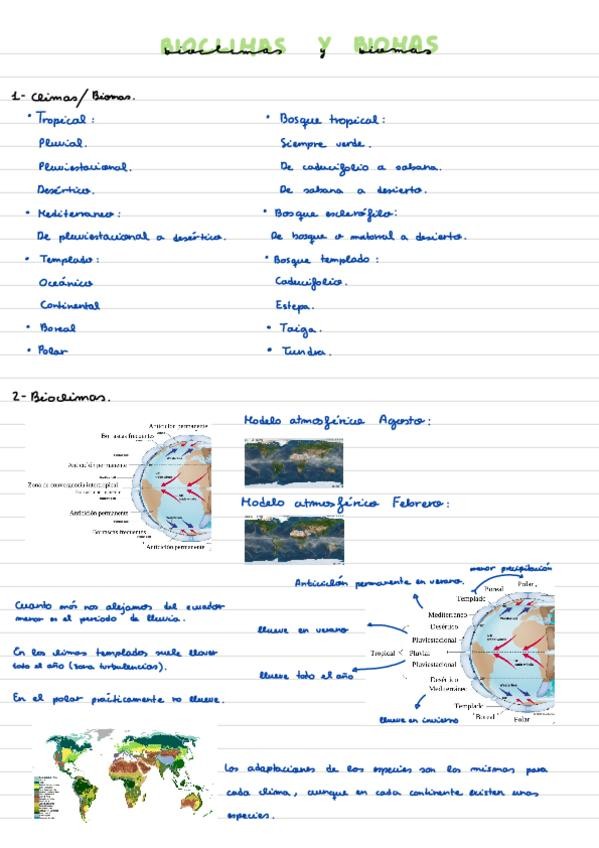 BIOCLIMAS y BIOMAS
bioclimas y biomas
1- Climas/Biomas.
• Tropical:
Pluvial.
Pluviestacional.
Desértico.
• Mediterraneo:
De pluviestacional a desértico.
• Templado:
Oceánico
Continental
• Boreal
• Polar
• Bosque tropical:
Siempre verde.
De caducifolio a sabana.
De sabana a desierto.
• Bosque esclerófilo:
De bosque o matorral a desierto.
• Bosque templado:
Caducifolio.
Estepa.
• Taiga.
• Tundra.
2- Bioclimas.
Anticiclón permanente
Borrascas frecuentes
Anticiclón permanente
Zona de convergencia intertropical
Anticiclón permanente
Borrascas frecuentes
Anticiclón permanente
Modelo atmosférico Agosto:
Modelo atmosférico Febrero:
Cuanto más nos alejamos del ecuador
menor es el periodo de lluvia.
En los climas templados suele llover
todo el año (zona turbulencias).
En el polar prácticamente no llueve.
menor precipitación
Anticiclón permanente en verano.
llueve en verano
llueve todo el año
llueve en invierno
Polar
Boreal
Templado
Mediterraneo
Desértico
Pluviestacional
Tropical
Pluvial
Pluviestacional
Desértico
Mediterráneo
Templado
Boreal
Polar
Las adaptaciones de las especies son las mismas para
cada clima, aunque en cada continente existen unas
especies.